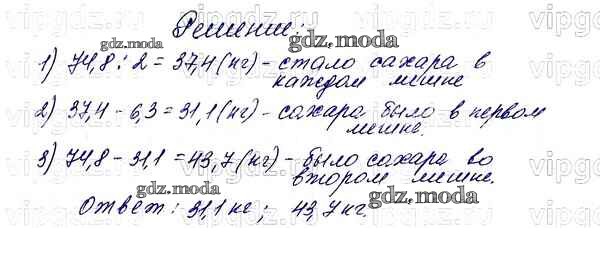 Решение:
1) 74,8 : 2 = 37,4 (кг) - стало сахара в
каждом мешке
2) 37,4 - 6,3 = 31,1 (кг) - сахара было в первом
мешке.
3) 74,8 - 31,1 = 43,7 (кг) - было сахара во
втором мешке.
Ответ: 31,1 кг; 43,7 кг.
gdz.moda
gdz.moda
gdz.moda
gdz.moda
gdz.moda
gdz.moda